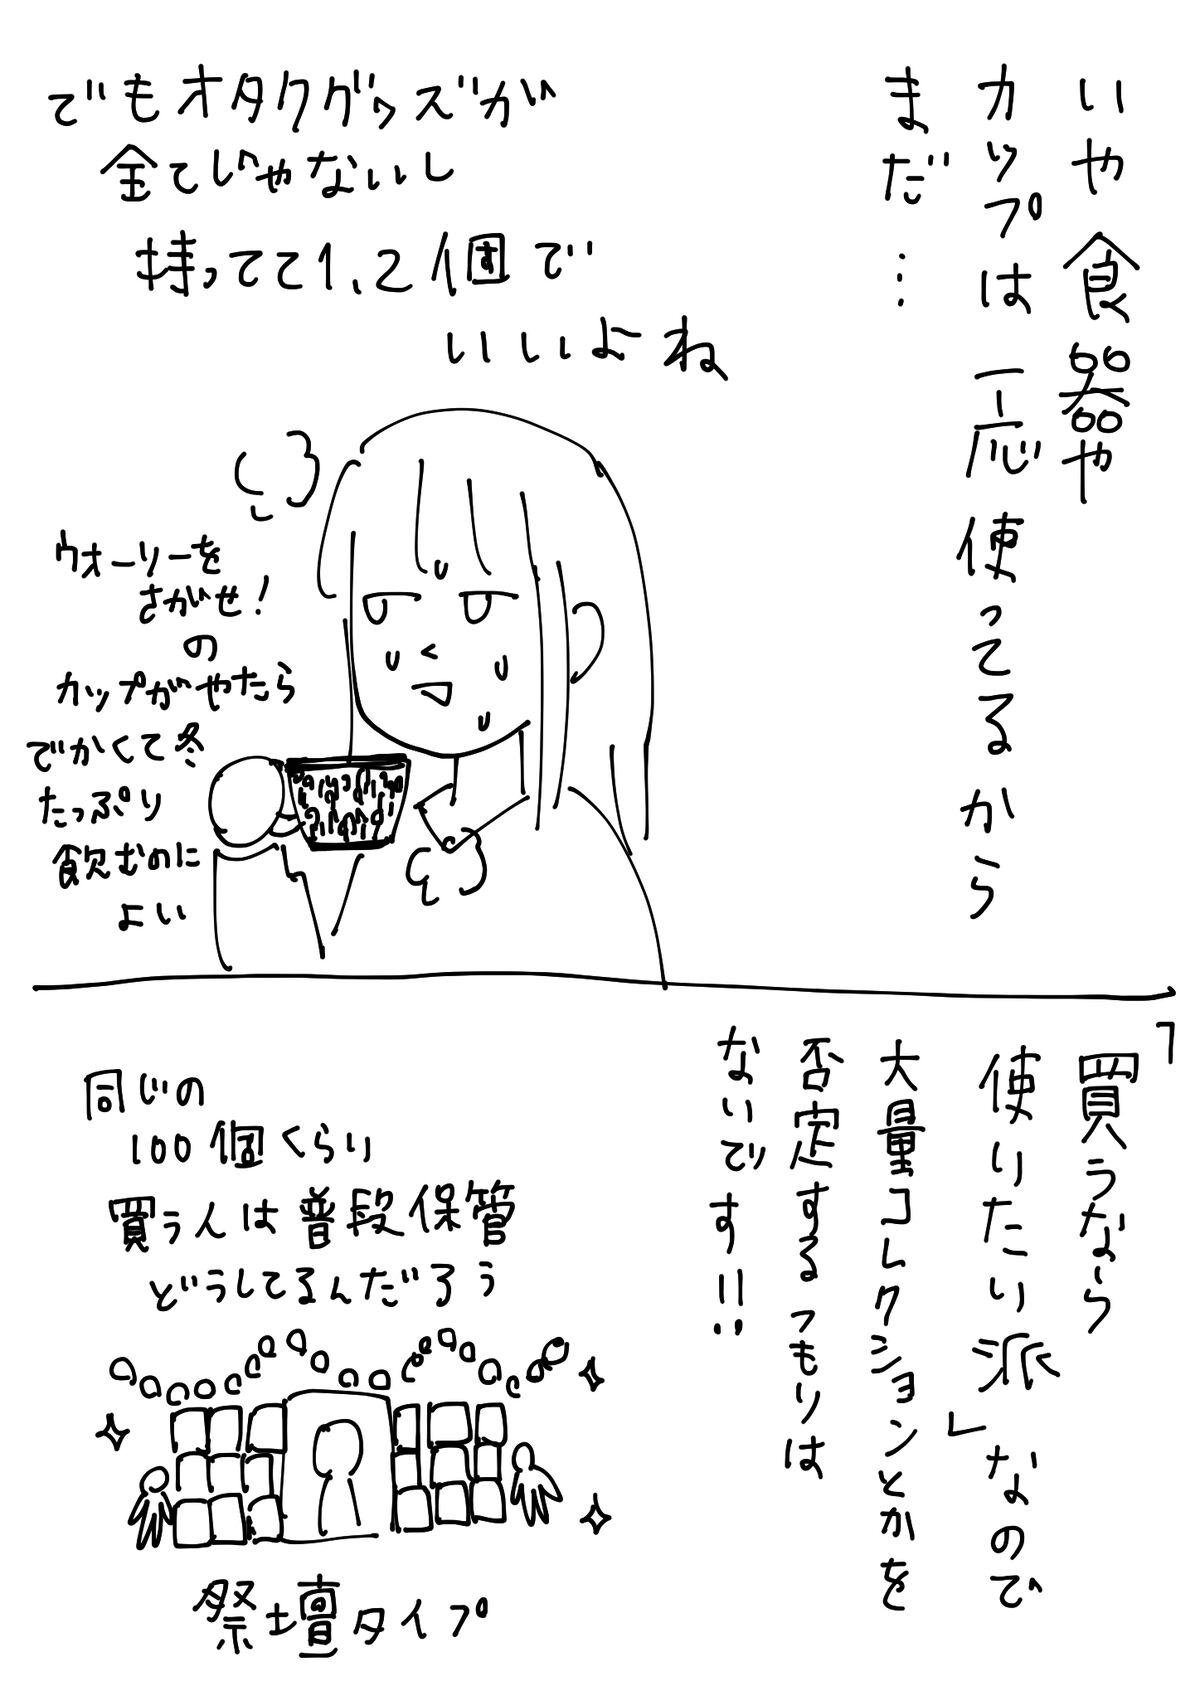 いや食器や
カップは一応使ってるから
まだ…
でもオタクグッズが
全てじゃないし
持ってて1、2個で
いいよね
ウォーリーを
さがせ!
の
カップがやたら
でかくて冬
たっぷり
飲むのに
よい
「買うなら
使いたい派」なので
大量コレクションとかを
否定するつもりは
ないです!!
同じの
100個くらい
買う人は普段保管
どうしてるんだろう
祭壇タイプ